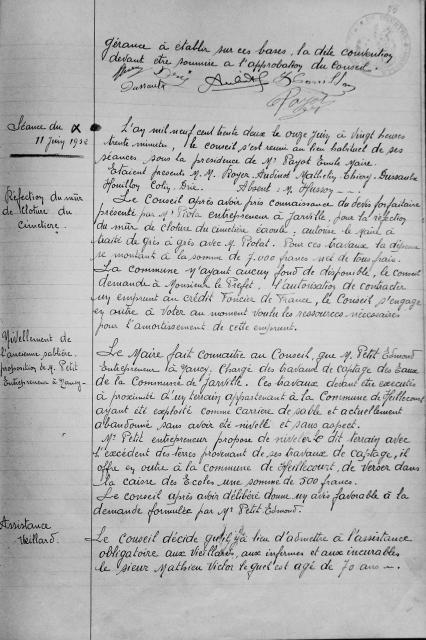 gérance à établir sur ces bases, la dite convention
devant être soumise a l'approbation du Conseil.
Dussaulx
Payot
Séance du
11 Juin 1932
L'an mil neuf cent trente deux le onze Juin à vingt heures
trente minutes, le conseil s'est réuni au lieu habituel de ses
séances sous la présidence de Mr Payot Emile Maire.
Etaient présents M.M. Royer, Audinot, Mathelin, Thiery, Dussaulx
Houillon, Colin, Absent: M. Husson
Réfection du mur
de Cloture du
Cimetière.
Le Conseil après avoir pris connaissance du devis forfaitaire
présenté par Mr Piola entrepreneur à Jarville, pour la réfection
du mur de cloture du cimetière écroulé, autorise le Maire à
traité de grès à grès avec M. Piolat. Pour ces travaux la dépense
se montant à la somme de 7.000 francs net de tous frais.
La commune n'ayant aucun fond de disponible, le conseil
demande à Monsieur le Préfet, l'autorisation de contracter
un emprunt au crédit Foncier de France, le Conseil s'engage
en outre à voter au moment voulu les ressources nécessaires
pour l'amortissement de cette emprunt.
Nivellement de
l'ancienne sablière
proposition de M. Petit
Entrepreneur à Nancy
Le Maire fait connaitre au Conseil, que M. Petit Edmond
Entrepreneur à Nancy, Chargé des travaux de captage des Eaux
de la Commune de Jarville. Ces travaux devant être exécutés
à proximité d'un terrain appartenant à la Commune de Heillecourt
ayant été exploité comme carrière de sable et actuellement
abandonné sans avoir été nivelé et sans aspect.
Mr Petit entrepreneur propose de niveler le dit terrain avec
l'excédent des terres provenant de ses travaux de captage, il
offre en outre à la commune de Heillecourt, de verser dans
la caisse des Ecoles une somme de 500 francs.
Le conseil après avoir délibéré donne un avis favorable à la
demande formulée par Mr Petit Edmond.
Assistance
Vieillard.
Le conseil décide qu'il y a lieu d'admettre à l'assistance
obligatoire aux Vieillards, aux infirmes et aux incurables
le sieur Mathieu Victor lequel est agé de 70 ans